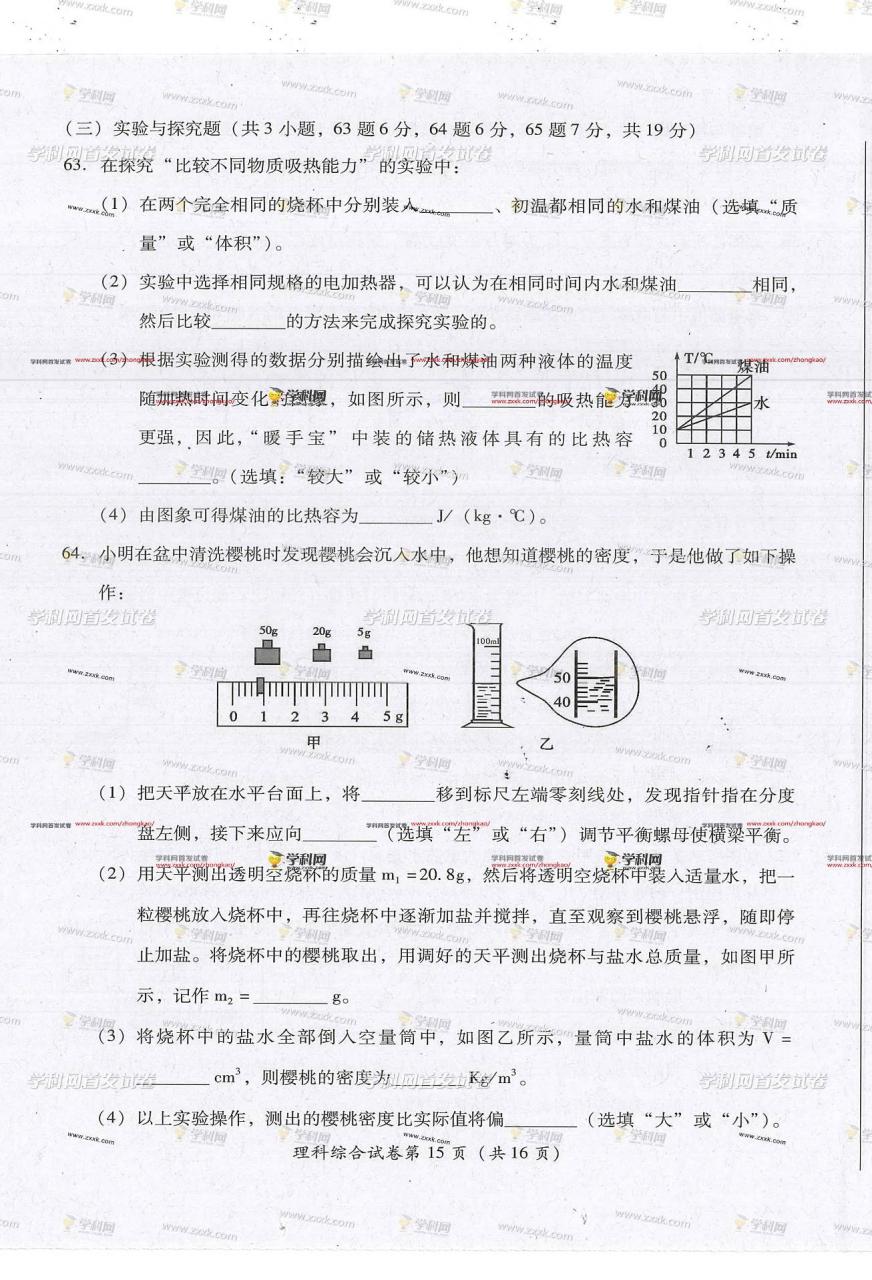 （三）实验与探究题（共3小题，63题6分，64题6分，65题7分，共19分）
63. 在探究“比较不同物质吸热能力”的实验中：
（1）在两个完全相同的烧杯中分别装入________、初温都相同的水和煤油（选填“质
量”或“体积”）。
（2）实验中选择相同规格的电加热器，可以认为在相同时间内水和煤油________相同，
然后比较________的方法来完成探究实验的。
（3）根据实验测得的数据分别描绘出了水和煤油两种液体的温度
随加热时间变化的图象，如图所示，则________的吸热能力
更强，因此，“暖手宝”中装的储热液体具有的比热容
________。（选填：“较大”或“较小”）
T/℃
煤油
水
50
40
30
20
10
0
1 2 3 4 5 t/min
（4）由图象可得煤油的比热容为________J/（kg·℃）。
64. 小明在盆中清洗樱桃时发现樱桃会沉入水中，他想知道樱桃的密度，于是他做了如下操
作：
50g 20g 5g
0 1 2 3 4 5 g
甲
100ml
50
40
乙
（1）把天平放在水平台面上，将________移到标尺左端零刻线处，发现指针指在分度
盘左侧，接下来应向________（选填“左”或“右”）调节平衡螺母使横梁平衡。
（2）用天平测出透明空烧杯的质量 m₁ =20.8g，然后将透明空烧杯中装入适量水，把一
粒樱桃放入烧杯中，再往烧杯中逐渐加盐并搅拌，直至观察到樱桃悬浮，随即停
止加盐。将烧杯中的樱桃取出，用调好的天平测出烧杯与盐水总质量，如图甲所
示，记作 m₂ =________g。
（3）将烧杯中的盐水全部倒入空量筒中，如图乙所示，量筒中盐水的体积为 V =
________cm³，则樱桃的密度为________Kg/m³。
（4）以上实验操作，测出的樱桃密度比实际值将偏________（选填“大”或“小”）。
理科综合试卷第15页（共16页）
学科网首发试卷
学科网
www.zxxk.com
www.zxxk.com/zhongkao/